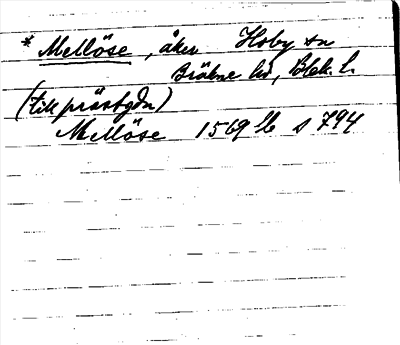 * Mellöse, åker Hoby sn
Bräkne hd, Blek. l.
(till prästgdn)
Mellöse 1569 lb s 794